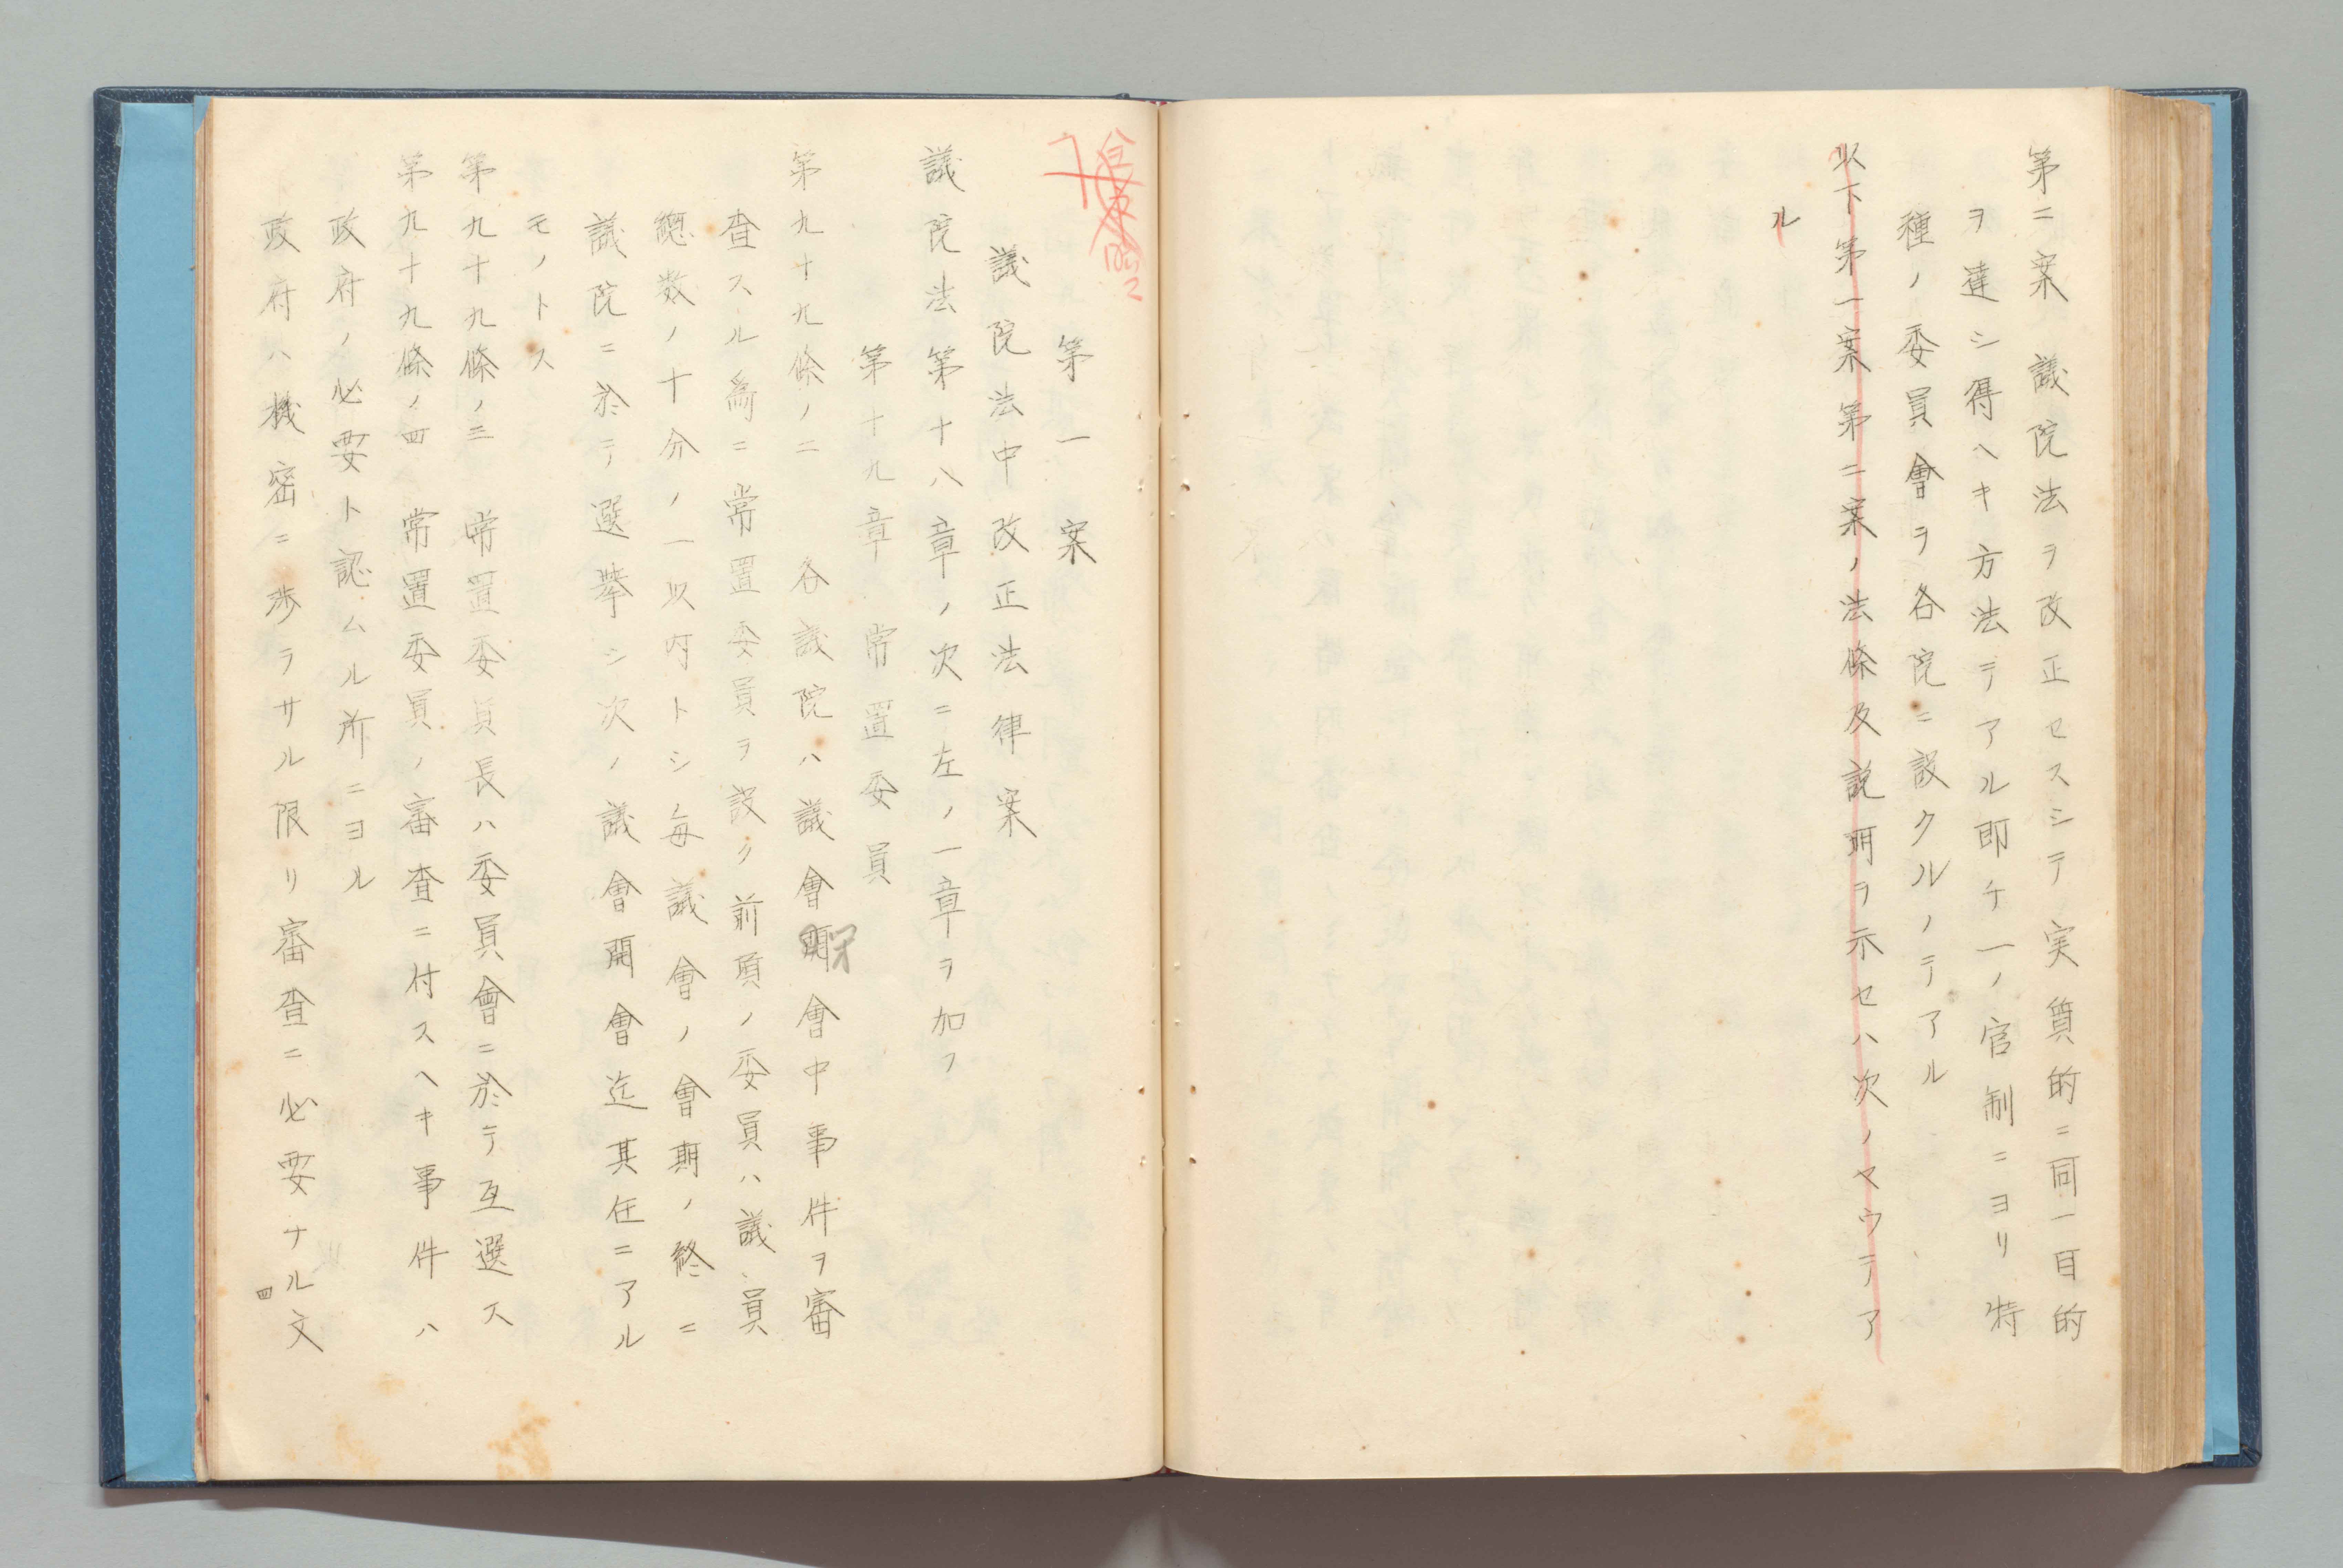 第二案 議院法ヲ改正セスシテ実質的ニ同一目的
ヲ達シ得ヘキ方法テアル即チ一ノ官制ニヨリ特
種ノ委員會ヲ各院ニ設クルノテアル
以下第一案第二案ノ法條及説明ヲ示セハ次ノヤウテア
ル
第一案
議院法中改正法律案
議院法第十八章ノ次ニ左ノ一章ヲ加フ
第十九章 常置委員
第九十九條ノ二 各議院ハ議會閉會中事件ヲ審
査スル為ニ常置委員ヲ設ク前項ノ委員ハ議員
總数ノ十分ノ一以内トシ毎議會ノ會期ノ終ニ
議院ニ於テ選挙シ次ノ議會開會迄其任ニアル
モノトス
第九十九條ノ三 常置委員長ハ委員會ニ於テ互選ス
第九十九條ノ四 常置委員ノ審査ニ付スヘキ事件ハ
政府ノ必要ト認ムル所ニヨル
政府ハ機密ニ渉ラサル限リ審査ニ必要ナル文
四